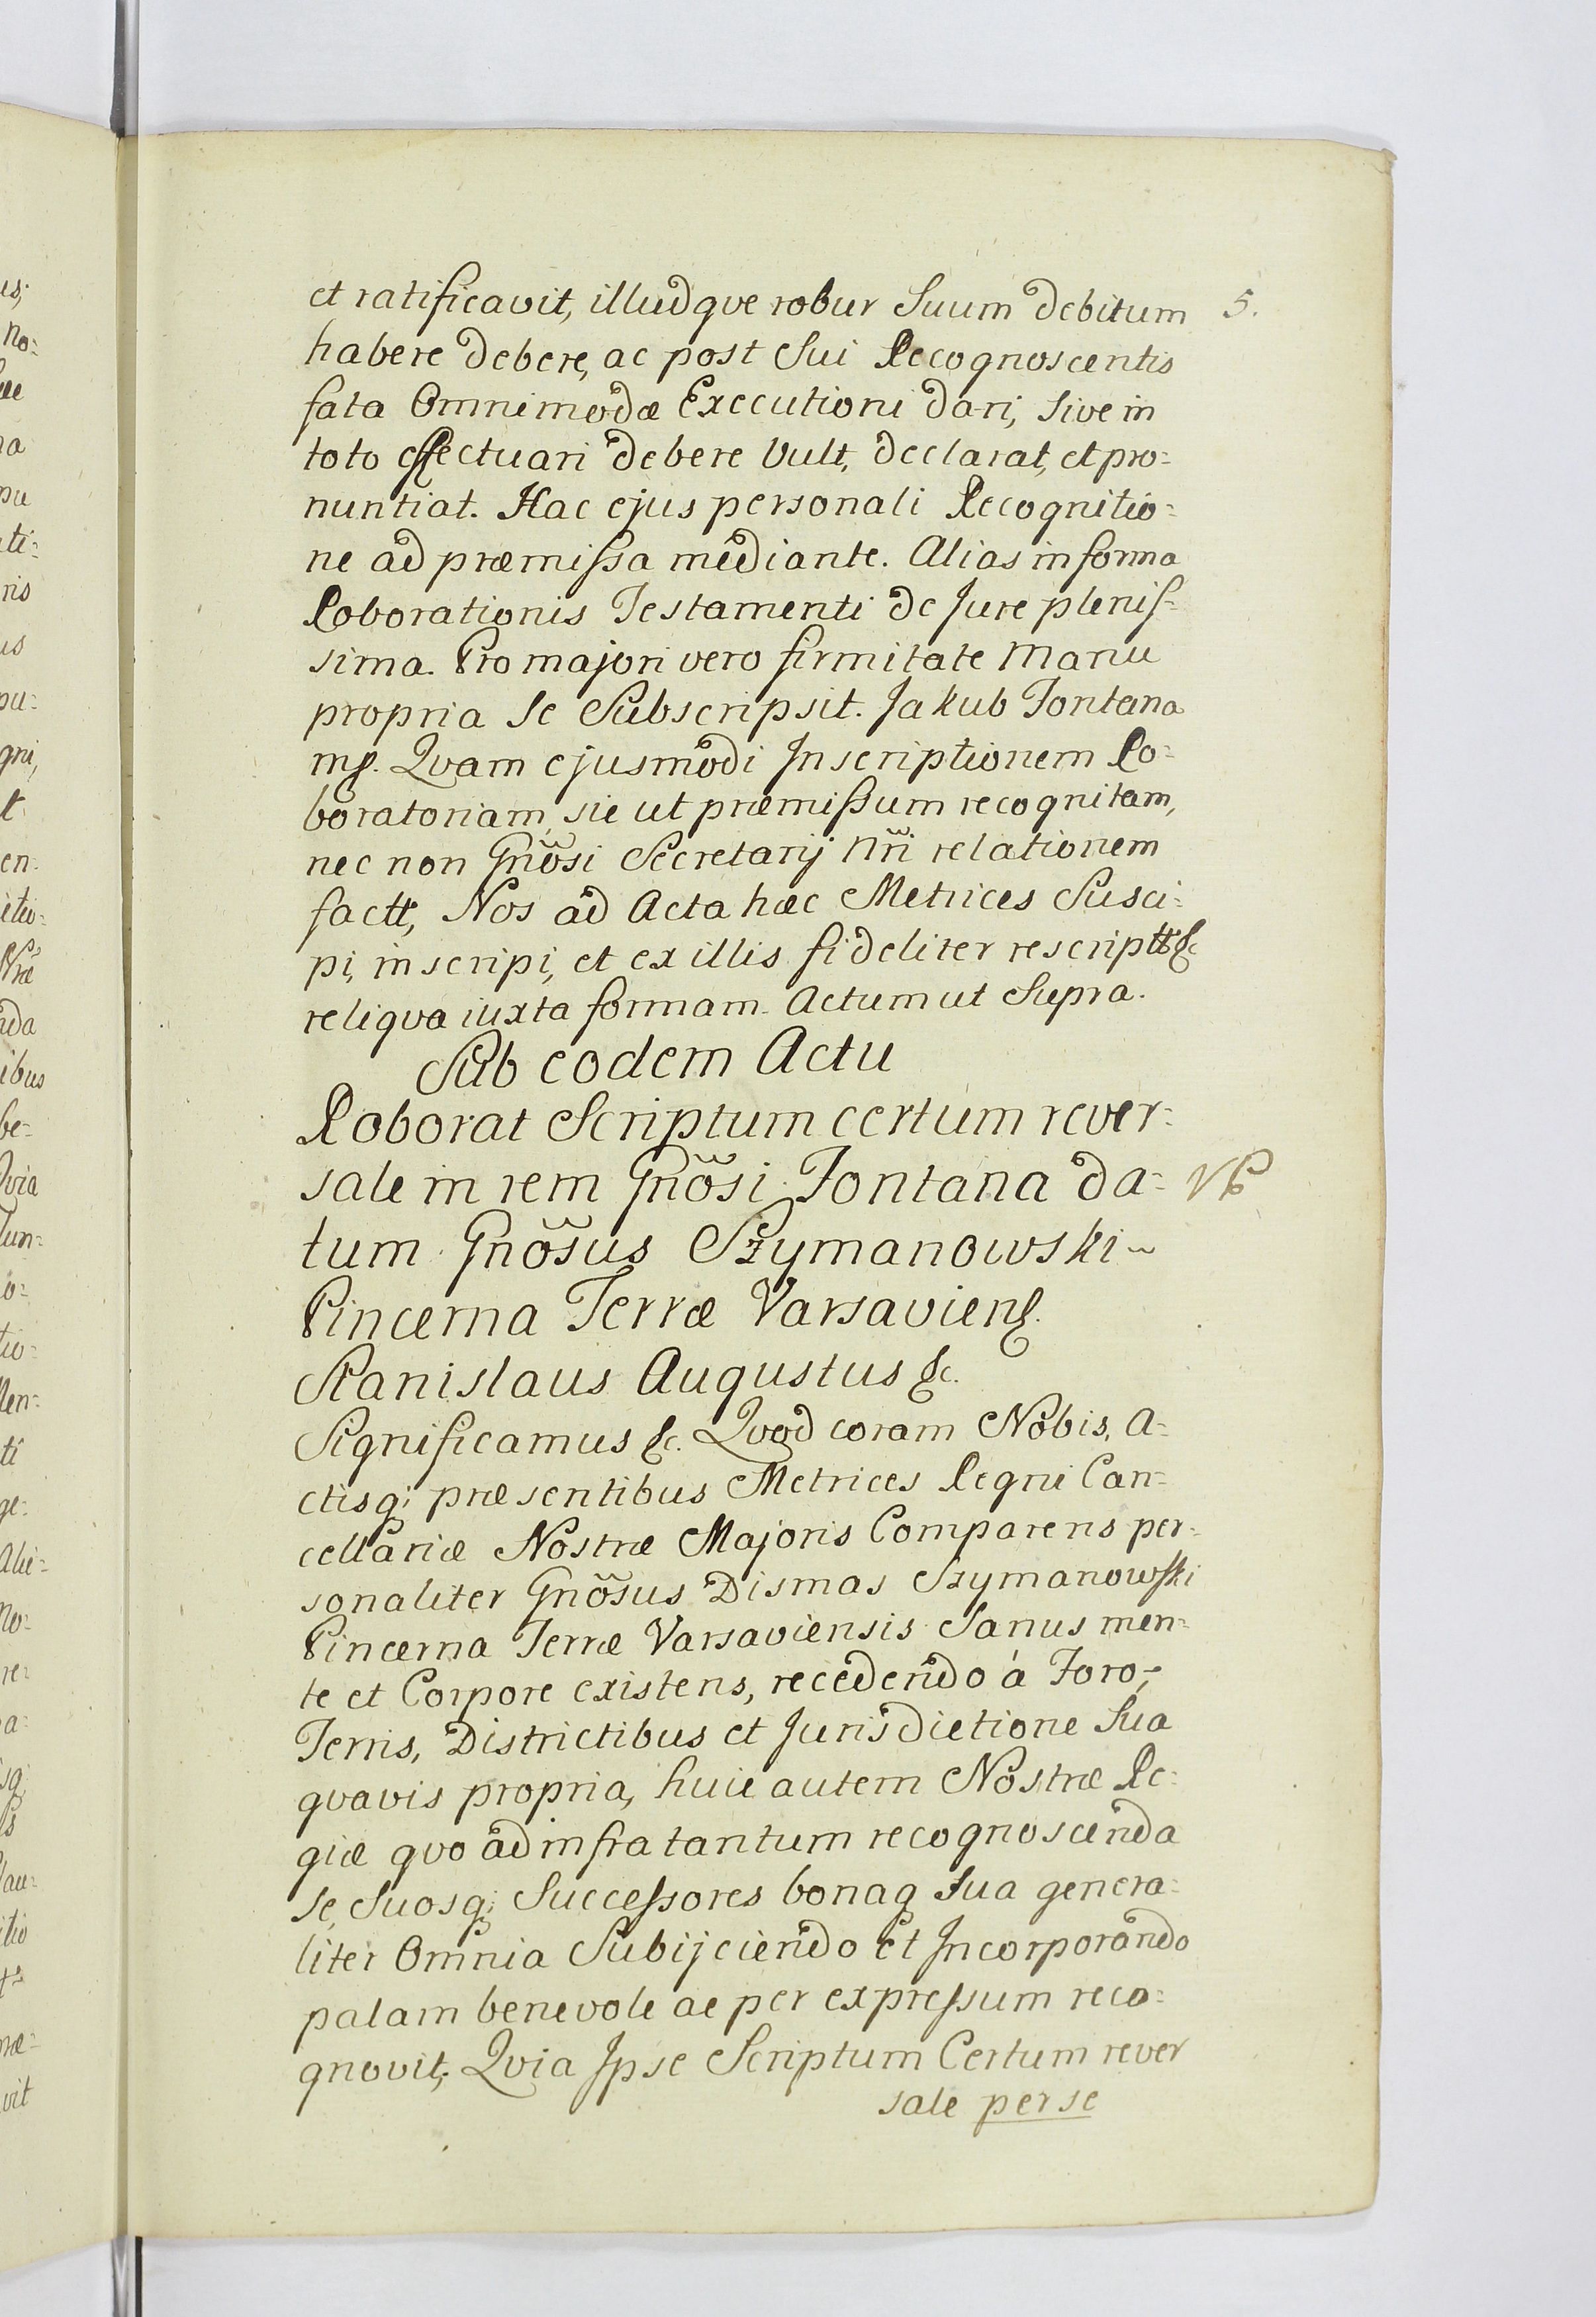 et ratificavit, illudqve robur Suum debitum 5.
habere debere, ac post Sui Recognoscentis
fata Omnimodæ Executioni dari, sive in
toto effectuari debere Vult, declarat, et pro=
nuntiat. Hac ejus personali Recognitio=
ne ad præmißa mediante. Alias in forma
Roborationis Testamenti de Jure plenis=
sima. Pro majori vero firmitate Manu
propria Se Subscripsit. Jakub Fontana
mp. Qvam ejusmodi Inscriptionem Ro=
boratoriam, sic ut præmißum recognitam,
nec non Gnõsi Secretarij Nri relationem
factt, Nos ad Acta hæc Metrices Susci=
pi, inscripi, et ex illis fideliter rescriptt &c
reliqva iuxta formam. Actum ut Supra.
Sub eodem Actu
Roborat Scriptum certum rever=
sale in rem Gnõsi Fontana da=
tum Gnõsus Szymanowski
Pincerna Terræ Varsaviens.
Stanislaus Augustus &c.
Significamus &c. Qvod coram Nobis, A=
ctisq; præsentibus Metrices Regni Can=
cellariæ Nostræ Majoris Comparens per=
sonaliter Gnõsus Dismas Szymanowski
Pincerna Terræ Varsaviensis Sanus men=
te et Corpore existens, recedendo á Foro,
Terris, Districtibus et Jurisdictione Sua
qvavis propria, huic autem Nostræ Re=
giæ qvo ad infra tantum recognoscenda
Se, Suosq; Succeßores bonaq Sua genera=
liter Omnia Subijciendo et Incorporando
palam benevole ac per expreßum reco=
gnovit; Qvia Ipse Scriptum Certum rever
sale per se